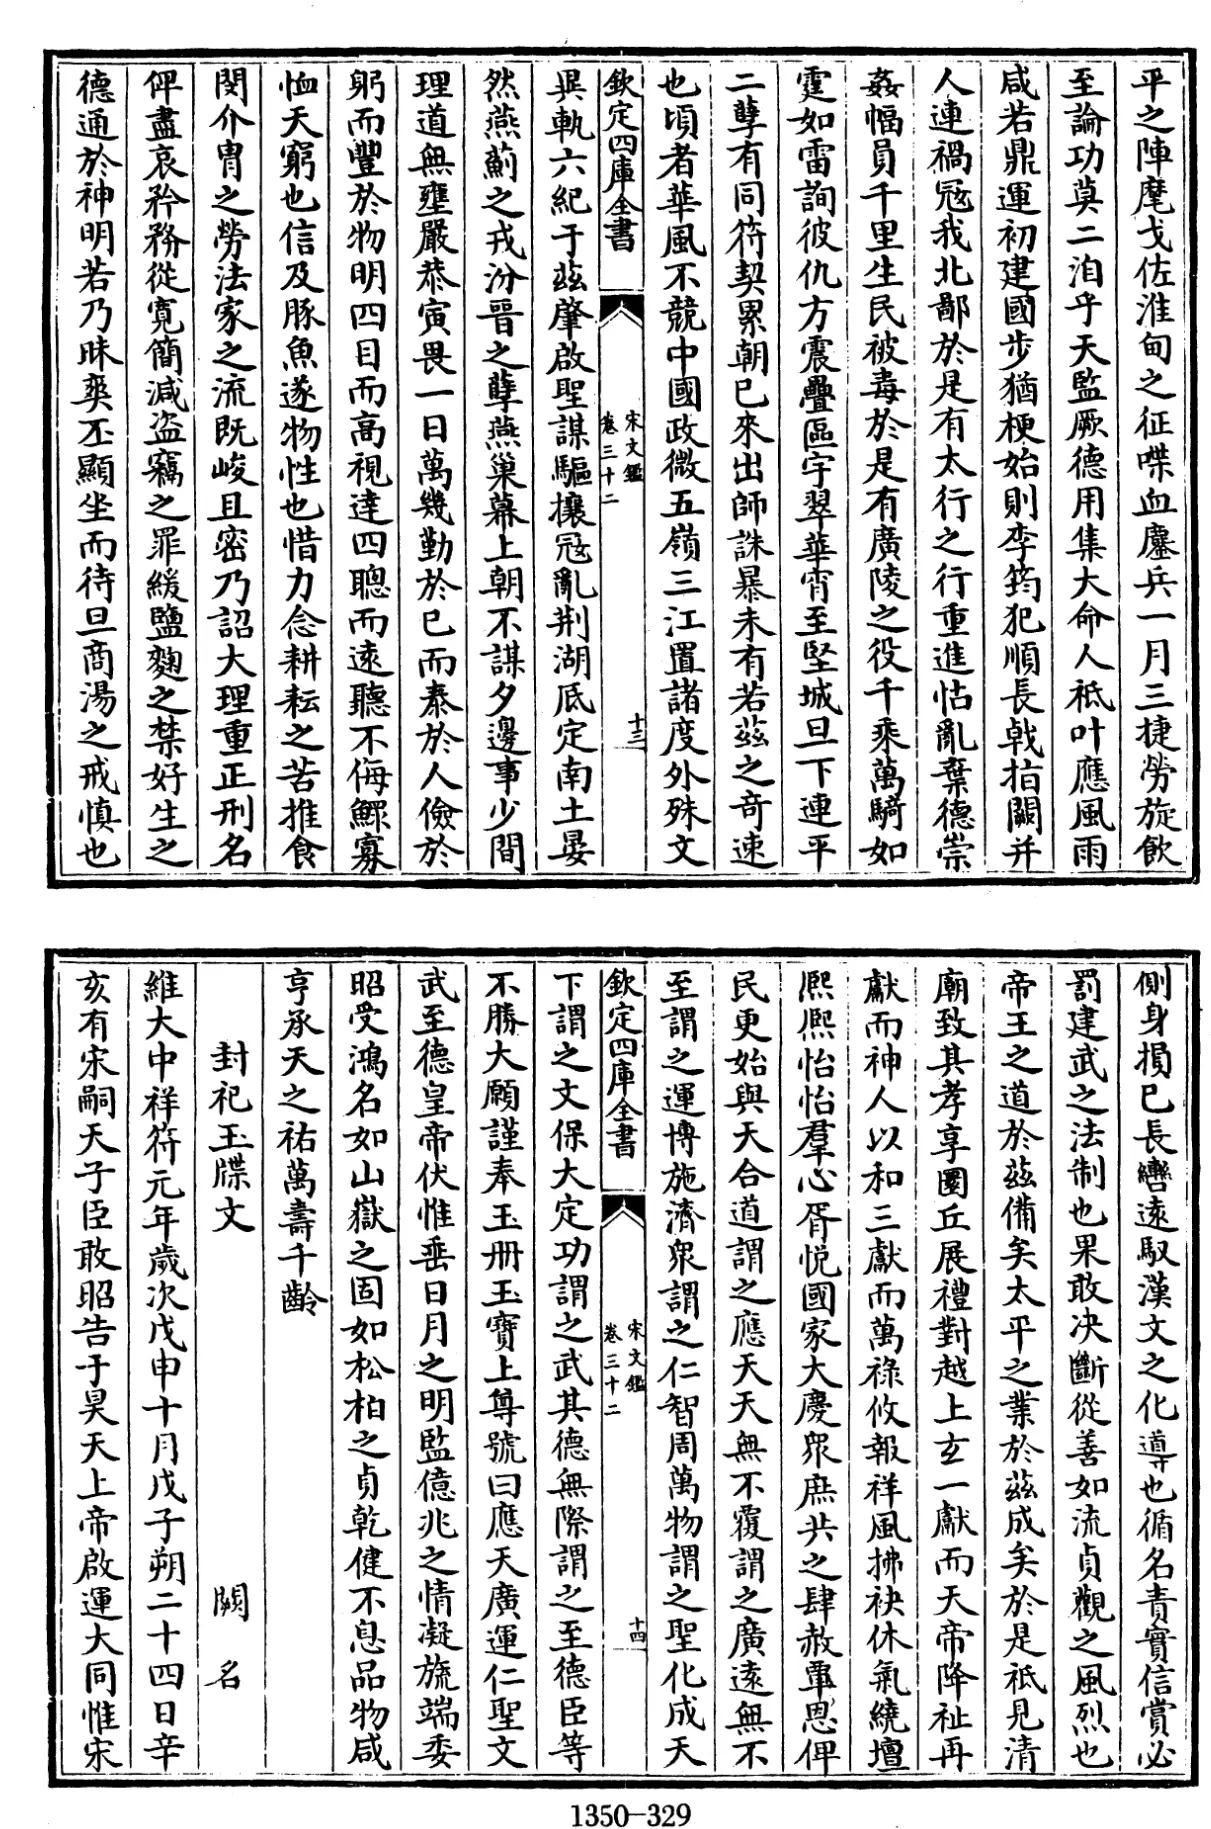 平之陣麾戈佐淮甸之征喋血鏖兵一月三捷勞旋飲
至論功莫二洎乎天監厥德用集大命人祗叶應風雨
咸若鼎運初建國步猶梗始則李筠犯順長戟指闕并
人連禍冦我北鄙於是有太行之行重進怙亂棄德崇
姦幅員千里生民被毒於是有廣陵之役千乘萬騎如
霆如雷詢彼仇方震疊區宇翠華宵至堅城旦下連平
二孽有同符契累朝已來出師誅暴未有若茲之奇速
也頃者華風不競中國政微五嶺三江置諸度外殊文
欽定四庫全書
宋文鑑
卷三十二
十三
異軌六紀于茲肇啟聖謀驅攘冦亂荆湖底定南土晏
然燕薊之戎汾晉之孽燕巢幕上朝不謀夕邊事少間
理道無壅嚴恭寅畏一日萬幾勤於已而泰於人儉於
躬而豐於物明四目而高視達四聰而遠聽不侮鰥寡
恤天窮也信及豚魚遂物性也惜力念耕耘之苦推食
閔介胄之勞法家之流既峻且密乃詔大理重正刑名
俾盡哀矜務從寛簡減盜竊之罪緩鹽麴之禁好生之
德通於神明若乃昧爽丕顯坐而待旦商湯之戒慎也
側身損已長轡遠馭漢文之化導也循名責實信賞必
罰建武之法制也果敢决斷從善如流貞觀之風烈也
帝王之道於茲備矣太平之業於茲成矣於是祗見清
廟致其孝享圜丘展禮對越上玄一獻而天帝降祉再
獻而神人以和三獻而萬祿攸報祥風拂袂休氣繞壇
熈熈怡怡羣心胥悦國家大慶衆庶共之肆赦覃恩俾
民更始與天合道謂之應天天無不覆謂之廣遠無不
至謂之運博施濟衆謂之仁智周萬物謂之聖化成天
欽定四庫全書
宋文鑑
卷三十二
十四
下謂之文保大定功謂之武其德無際謂之至德臣等
不勝大願謹奉玉册玉寶上尊號曰應天廣運仁聖文
武至德皇帝伏惟垂日月之明監億兆之情凝旒端委
昭受鴻名如山嶽之固如松柏之貞乾健不息品物咸
亨承天之祐萬壽千齡
封祀玉牒文 闕名
維大中祥符元年歲次戊申十月戊子朔二十四日辛
亥有宋嗣天子臣敢昭告于昊天上帝啟運大同惟宋
1350-329